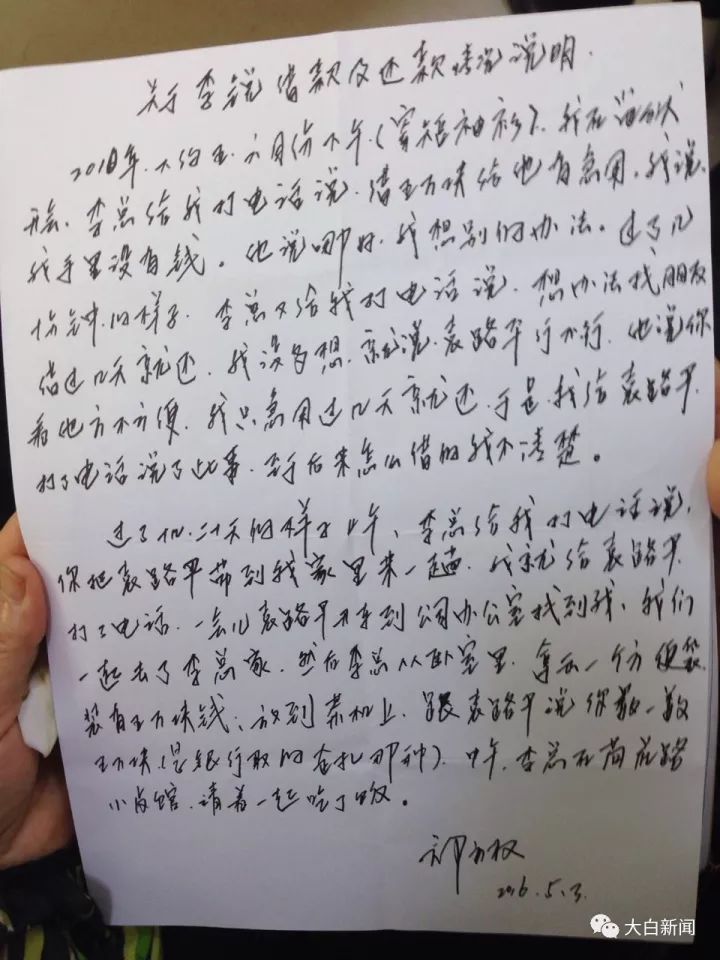 关于李锐借款及还款情况说明.
2010年.大约五.六月份下午.(穿短袖衫).我在
开会.李总给我打电话说.借五万块给他有急用.我说.
我手里没有钱。他说哪好.我想别的办法。过了几
十分钟的样子.李总又给我打电话说.想办法找朋友
借过几天就还.我没多想.就说.袁路平行不行.他说你
看他方不方便.我只急用过几天就还.于是.我给袁路平.
打了电话说了此事.至于后来怎么借的我不清楚。
过了十几.二十天的样子上午、李总给我打电话说,
你把袁路平带到我家里来一趟.我就给袁路平.
打了电话.一会儿袁路平开车到公司办公室找到我、我们
一起去了李总家.然后李总从卧室里.拿出一个方便袋.
装有五万块钱、放到茶机上.跟袁路平说你数一数
五万块(是银行取的全扎那种).中午.李总在荷花路
小卤馆.请着一起吃了饭。
2016.5.3.
大白新闻